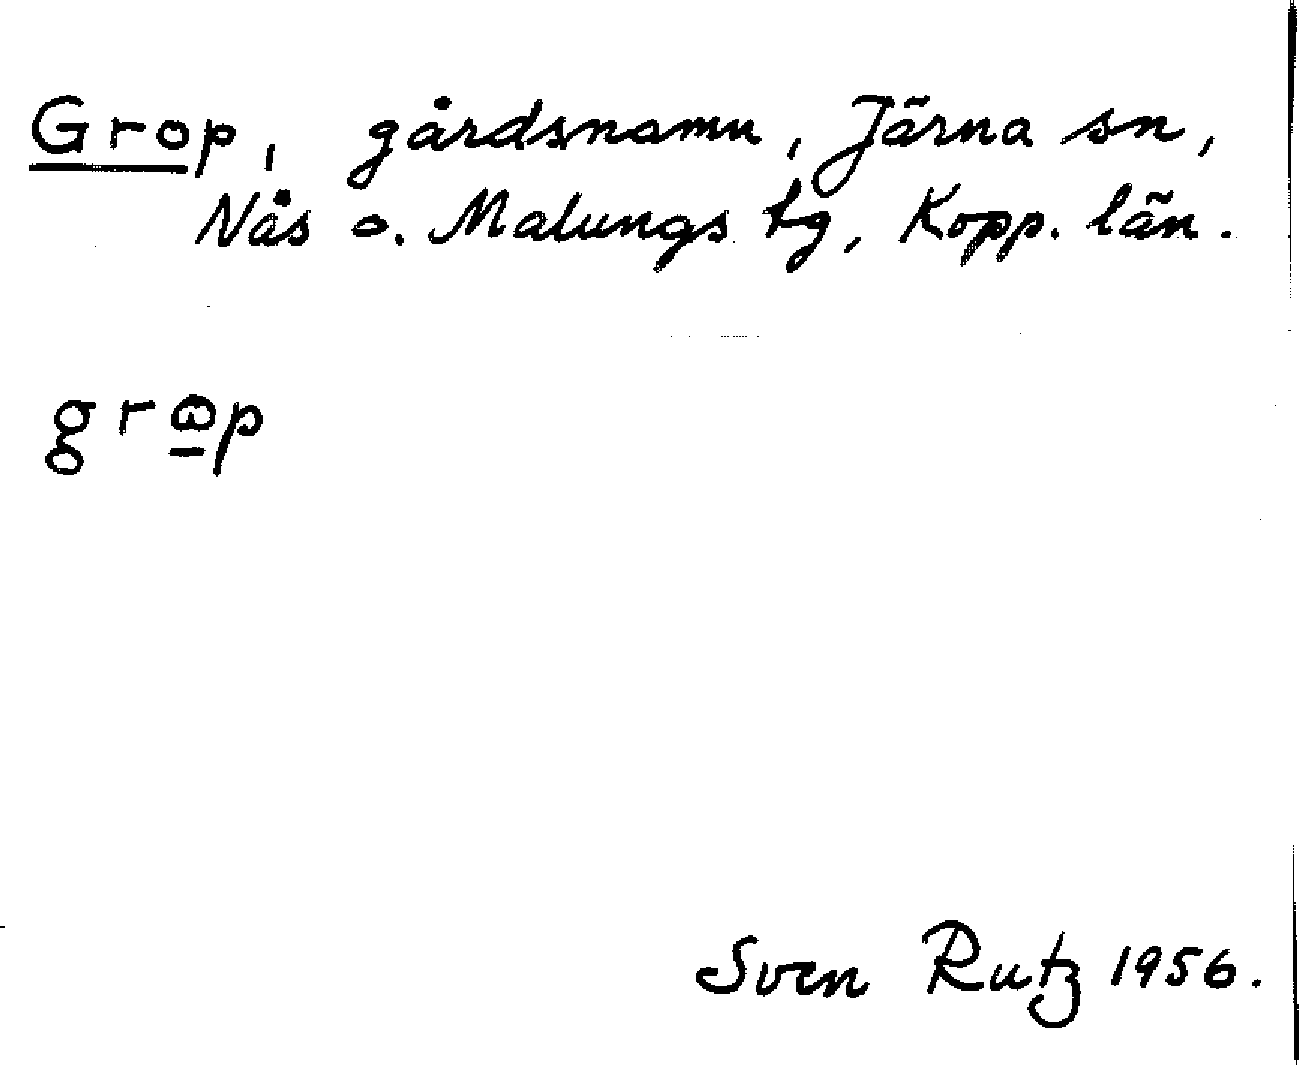 Grop, gårdsnamn, Järna sn,
Nås o. Malungs tg, Kopp. län.
Sven Rutz 1956.